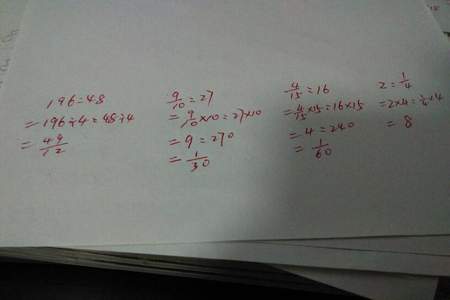 196:48
=196÷4:48÷4
=49/12
9/10:27
=9/10×10:27×10
=9:270
=1/30
4/15:16
=4/15×15:16×15
=4:240
=1/60
2:1/4
=2×4:1/4×4
=8